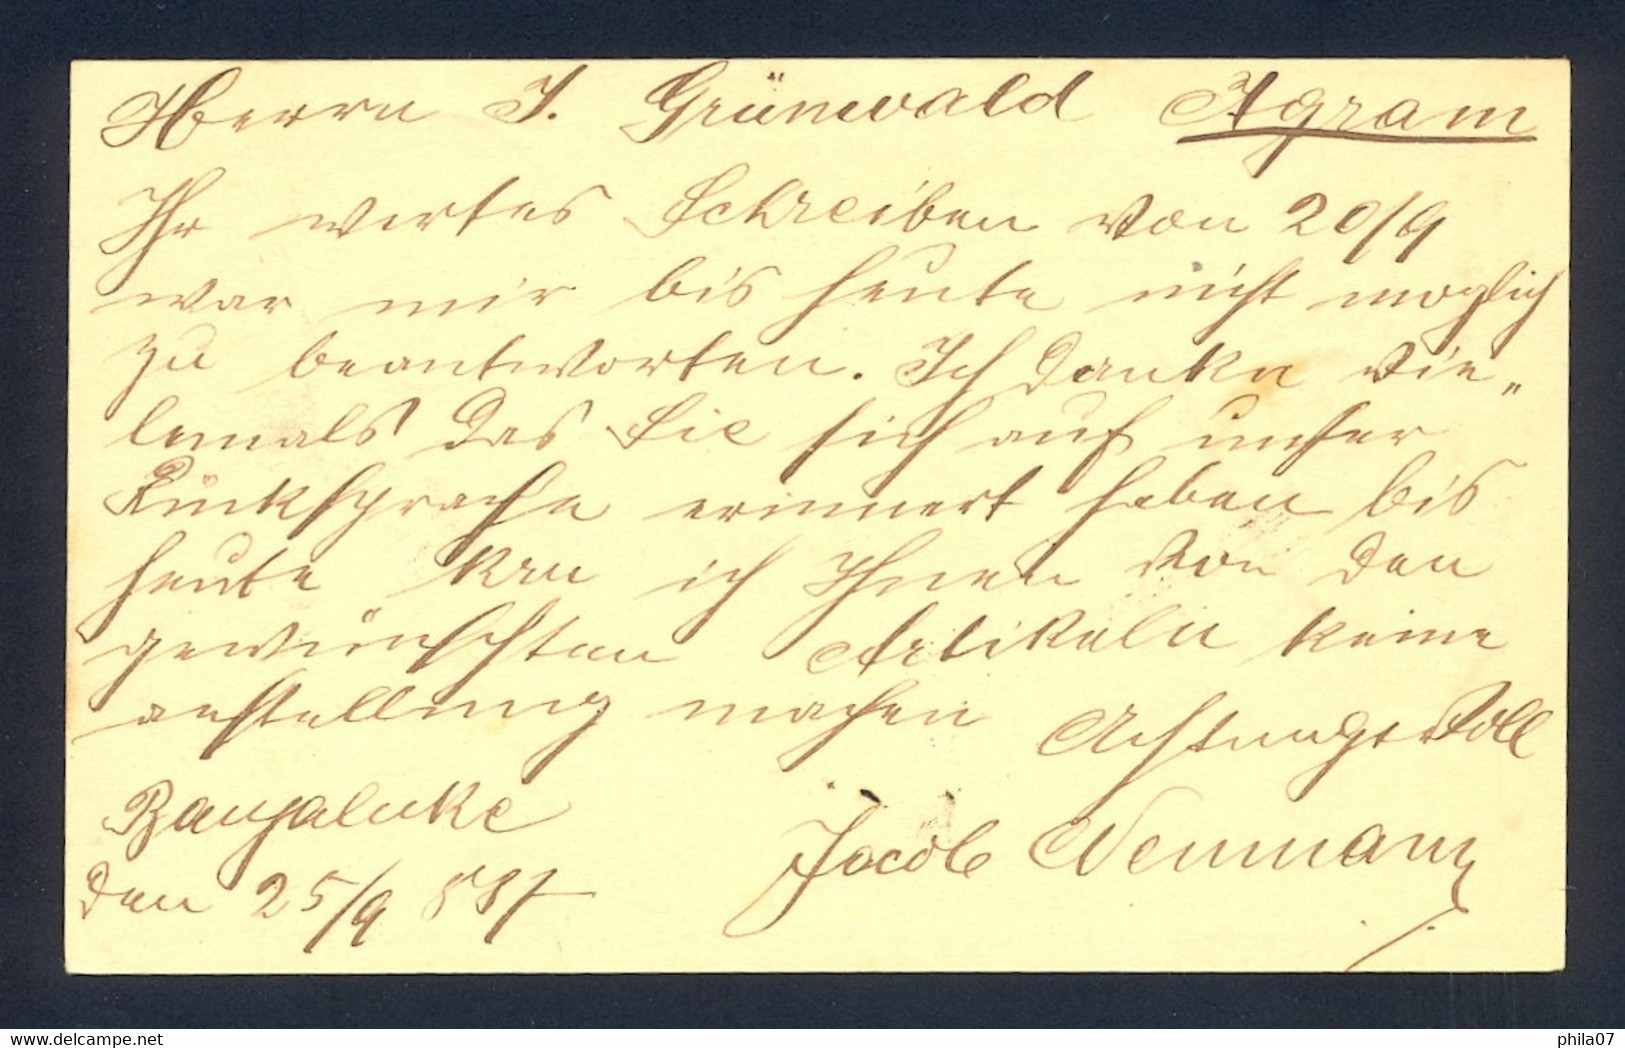 Herrn J. Grünwald Agram
Ihr wertes Schreiben von 20/9
war mir bis heute nicht moglich
zu beantworten. Ich danke vie„
lemals das Sie sich auf unser
Rücksprache erinnert haben bis
heute kan ich Ihnen von den
gewünschten Artikeln keine
anstellung machen Achtungsvoll
Banjaluke Jacob Neumann
den 25/9 887
phila07